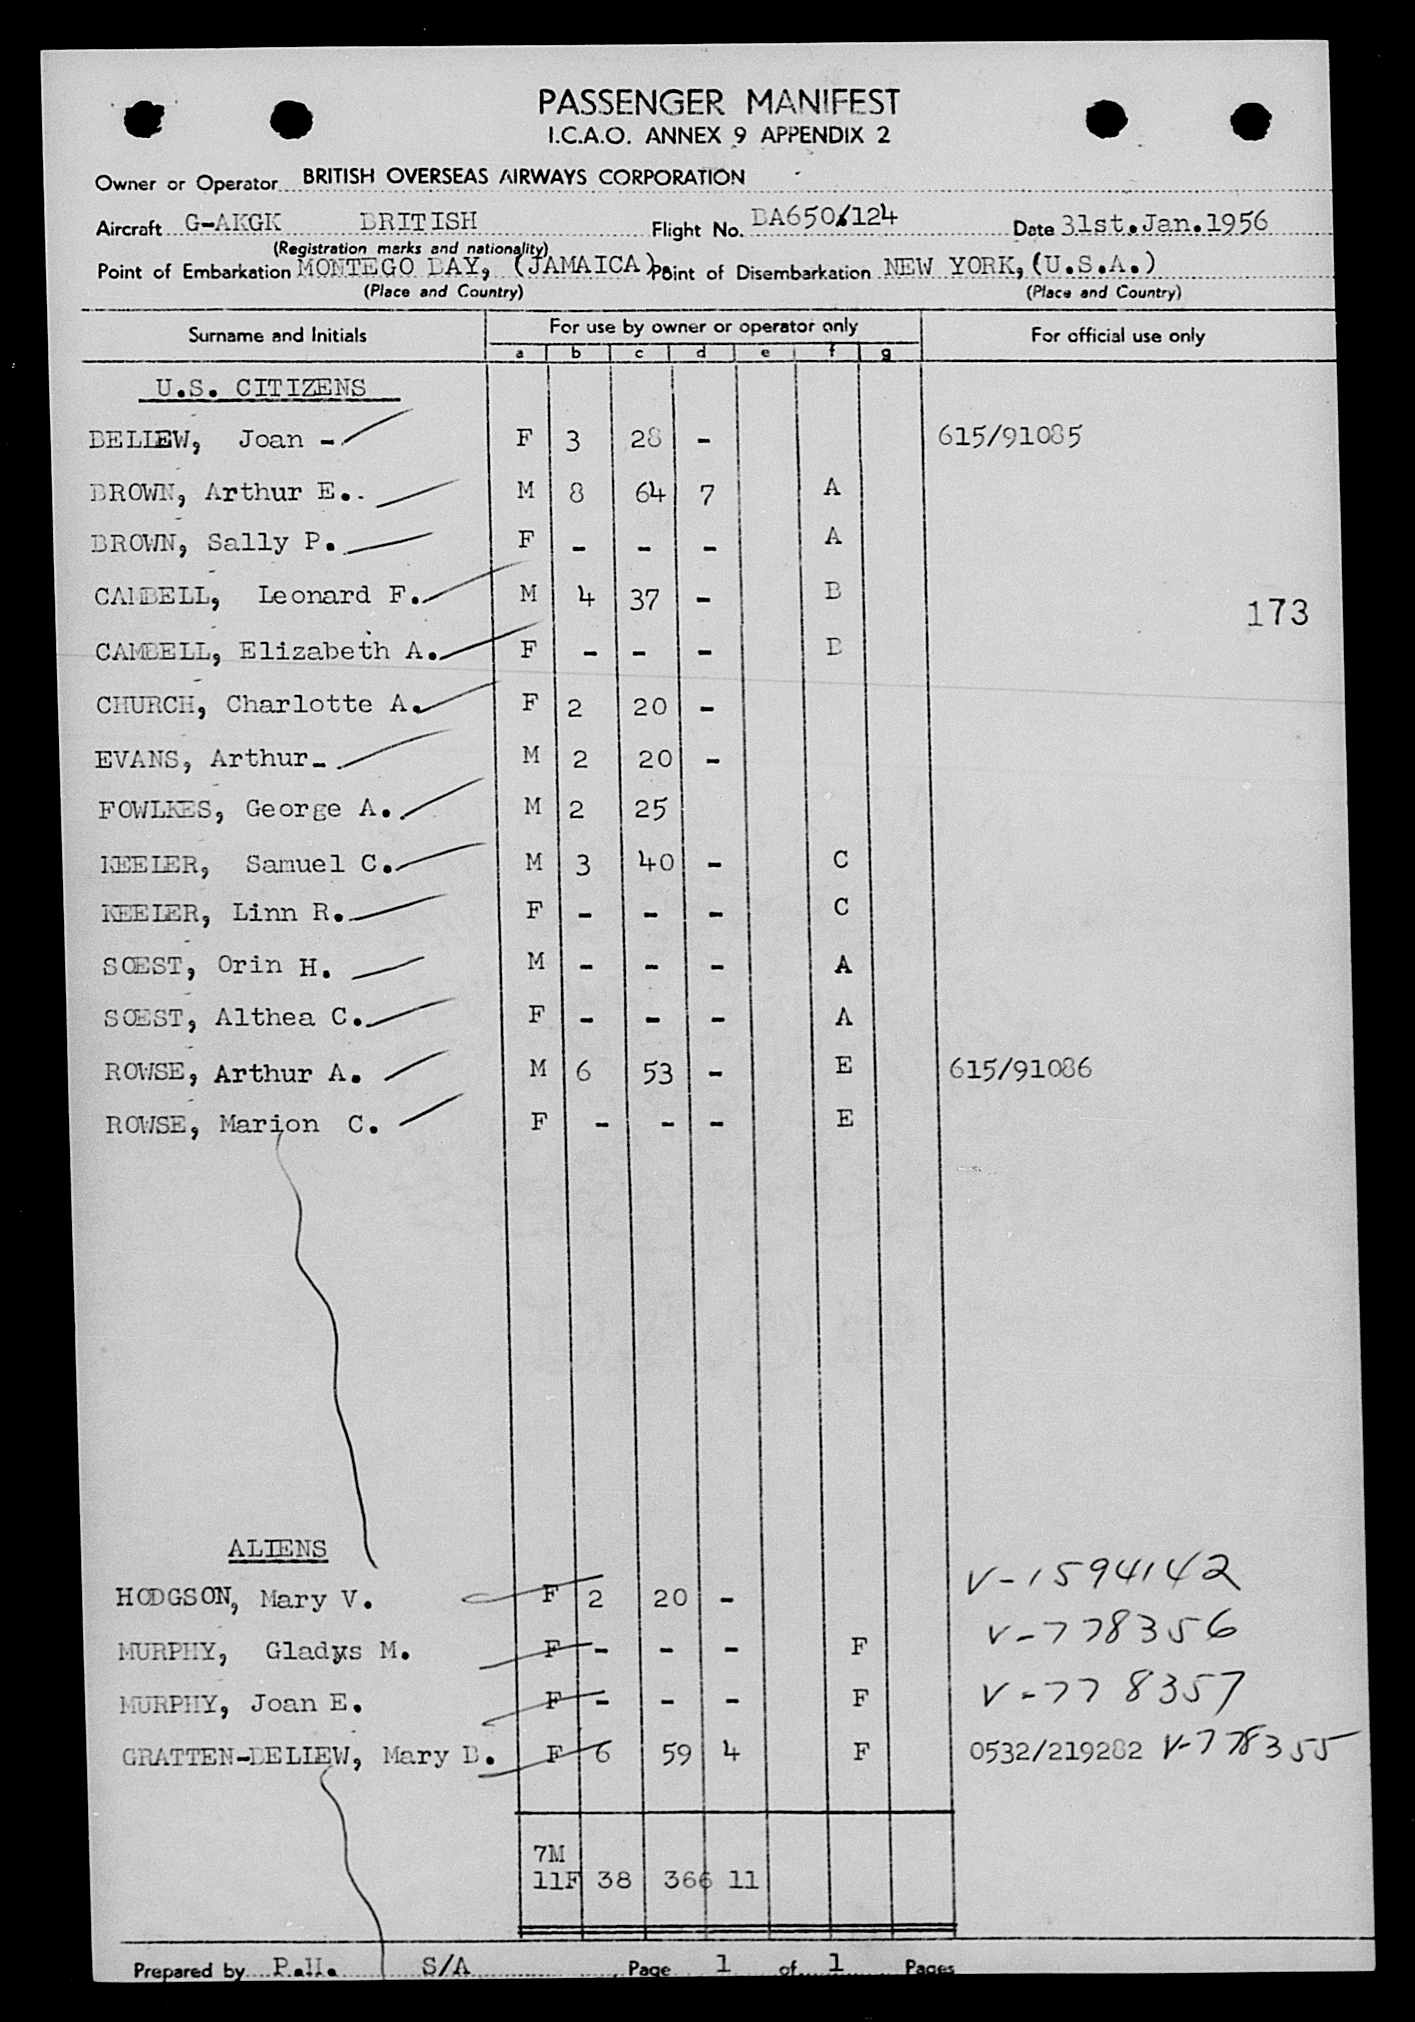 PASSENGER MANIFEST
I.C.A.O. ANNEX 9 APPENDIX 2
Owner or Operator BRITISH OVERSEAS AIRWAYS CORPORATION
Aircraft G-AKGK BRITISH Flight No. BA650/124 Date 31st.Jan.1956
(Registration marks and nationality)
Point of Embarkation MONTEGO BAY, (JAMAICA) Point of Disembarkation NEW YORK,(U.S.A.)
(Place and Country) (Place and Country)
Surname and Initials For use by owner or operator only For official use only
a b c d e f g
U.S. CITIZENS
BELIEW, Joan - F 3 28 - 615/91085
BROWN, Arthur E.. M 8 64 7 A
BROWN, Sally P. F - - - A
CAMBELL, Leonard F. M 4 37 - B
173
CAMBELL, Elizabeth A. F - - - B
CHURCH, Charlotte A. F 2 20 -
EVANS, Arthur- M 2 20 -
FOWLKES, George A. M 2 25
KEELER, Samuel C. M 3 40 - C
KEELER, Linn R. F - - - C
SOEST, Orin H. M - - - A
SOEST, Althea C. F - - - A
ROWSE, Arthur A. M 6 53 - E 615/91086
ROWSE, Marion C. F - - - E
ALIENS
HODGSON, Mary V. F 2 20 - V-1594142
MURPHY, Gladys M. F - - - F V-778356
MURPHY, Joan E. F - - - F V-778357
GRATTEN-BELIEW, Mary B. F 6 59 4 F 0532/219282 V-778355
7M
11F 38 366 11
Prepared by P.H. S/A Page 1 of 1 Pages